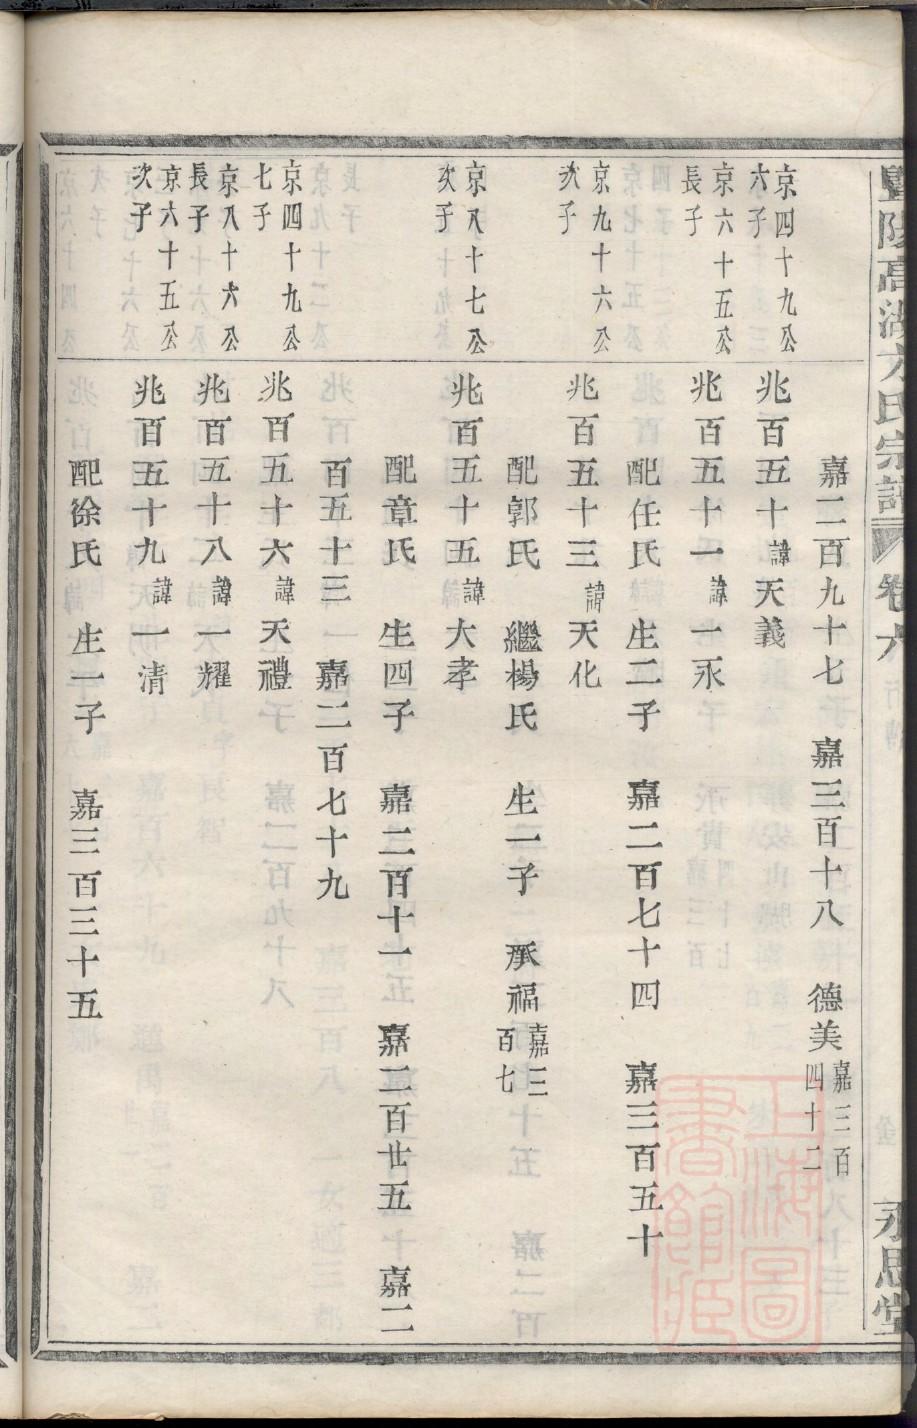 暨陽高湖方氏宗譜 卷六 永思堂
嘉二百九十七 嘉三百十八 德美嘉三百四十二
京四十九公六子
兆百五十諱天義
京六十五公長子
兆百五十一諱一永
配任氏 生二子 嘉二百七十四 嘉三百五十
京九十六公次子
兆百五十三諱天化
配郭氏 繼楊氏 生一子 承福嘉三百七
京八十七公次子
兆百五十五諱大孝
配章氏 生四子 嘉二百十一 嘉二百廿五 嘉二
百五十三 嘉二百七十九
京四十九公七子
兆百五十六諱天禮
京八十六公長子
兆百五十八諱一耀
京六十五公次子
兆百五十九諱一清
配徐氏 生一子 嘉三百三十五
上海圖書館藏